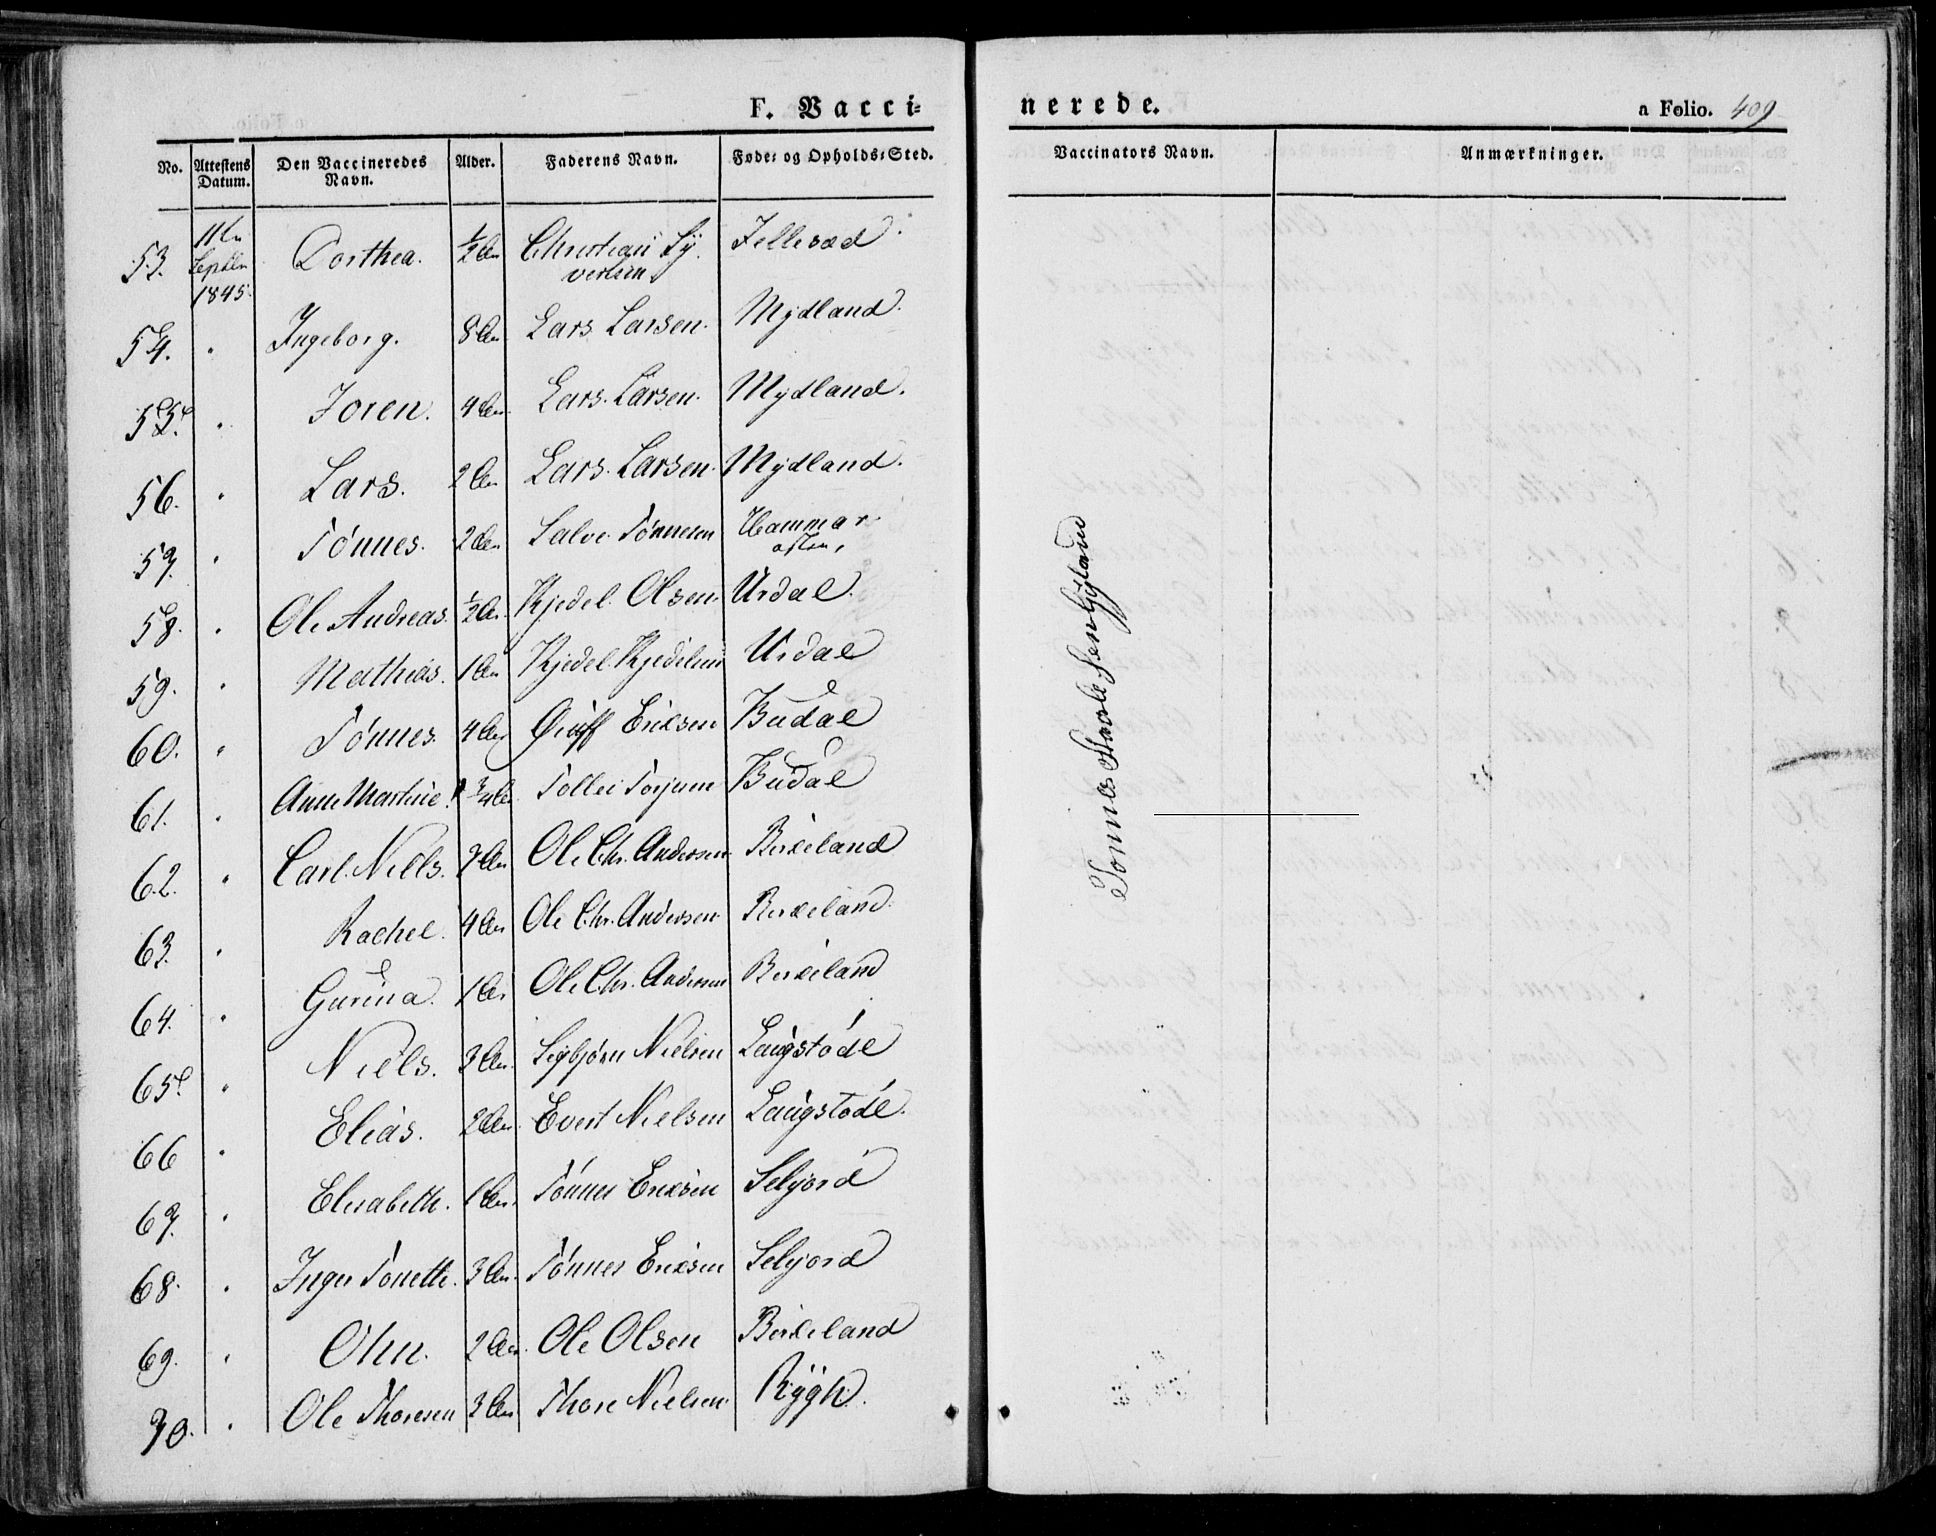 F. Vacci-
nerede.
a Folio. 409
No. Attestens Datum. Den Vaccineredes Navn. Alder. Faderens Navn. Føde- og Opholds-Sted. Vaccinators Navn. Anmærkninger.
53. 11te Septbr 1845. Dorthea. ½ Aar Christian Sÿvertsen Jellesad
54. " Ingeborg. 8 Aar Lars Larsen. Mydland.
55. " Joren. 4 Aar Lars Larsen. Mydland.
56. " Lars. 2 Aar Lars Larsen. Mydland.
57. " Tönnes. 2 Aar Salve Tönnesen Hammar
58. " Ole Andreas. ½ Aar Kjedel Olsen Urdal.
59. " Mathias. 1 Aar Kjedel Kjedelsen Urdal
60. " Tönnes. 4 Aar Eriksen Budal
61. " Anne Martine. ¾ Aar Tollei Budal
62. " Carl Niels. 7 Aar Ole Chr. Andersen Birkeland
63. " Rachel. 4 Aar Ole Chr. Andersen Birkeland
64. " Gurina. 1 Aar Ole Chr. Andersen Birkeland
65. " Niels. 3 Aar Sigbjørn Nielsen Langstöde
66 " Elias. 2 Aar Evert Nielsen Langstöde.
67. " Elisabeth. 1 Aar Tönnes Eriksen Selyord
68. " Inger Tonette. 3 Aar Tönnes Eriksen Selyord
69. " Olen. 2 Aar Ole Olsen Birkeland
70. " Ole Thoresen 3 Aar Thore Nielsen Rÿgh.
Tønnes Staalesen Gyland